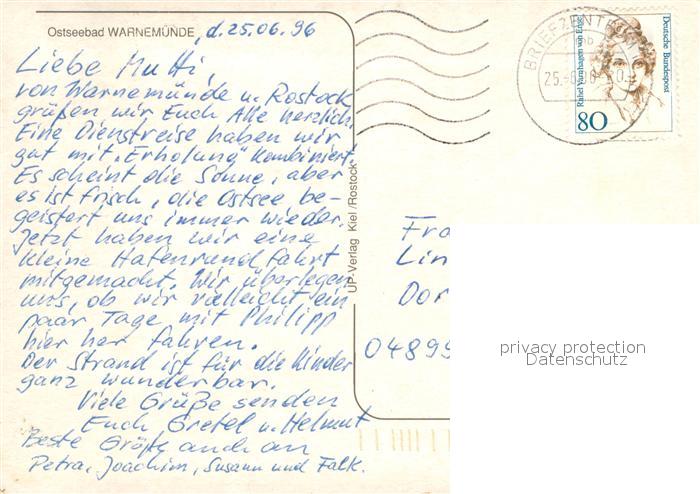 Ostseebad WARNEMÜNDE, d. 25.06.96
Liebe Mutti,
von Warnemünde u. Rostock
grüßen wir Euch Alle herzlich.
Eine Dienstreise haben wir
gut mit „Erholung" kombiniert.
Es scheint die Sonne, aber
es ist frisch, die Ostsee be-
geistert uns immer wieder.
Jetzt haben wir eine
kleine Hafenrundfahrt
mitgemacht. Wir überlegen
uns, ob wir vielleicht ein
paar Tage mit Philipp
hier her fahren.
Der Strand ist für die Kinder
ganz wunderbar.
Viele Grüße senden
Euch Gretel u. Helmut
Beste Grüße auch an
Petra, Joachim, Susann und Falk.
UP-Verlag Kiel/Rostock
BRIEFZENTRUM
25.-6.96
Rahel Varnhagen von Ense
Deutsche Bundespost
80
Fra
Lin
Dor
04899
privacy protection
Datenschutz